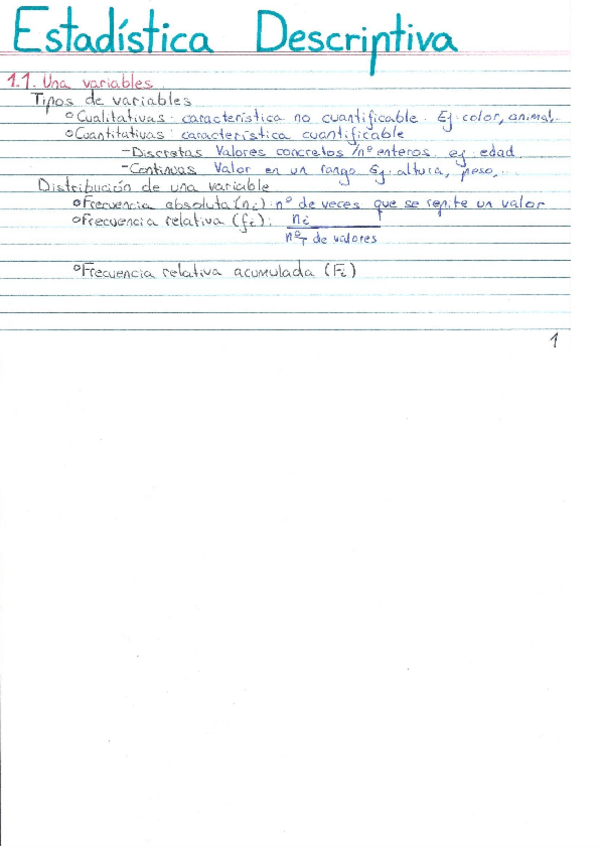 Estadística Descriptiva
1.1. Una variables
Tipos de variables
°Cualitativas: característica no cuantificable. Ej: color, animal...
°Cuantitativas: característica cuantificable
-Discretas Valores concretos /nº enteros. ej: edad
-Continuas Valor en un rango Ej: altura, peso,...
Distribución de una variable
°Frecuencia absoluta (ni): nº de veces que se repite un valor
°Frecuencia relativa (fi): ni
nºT de valores
°Frecuencia relativa acumulada (Fi)
1